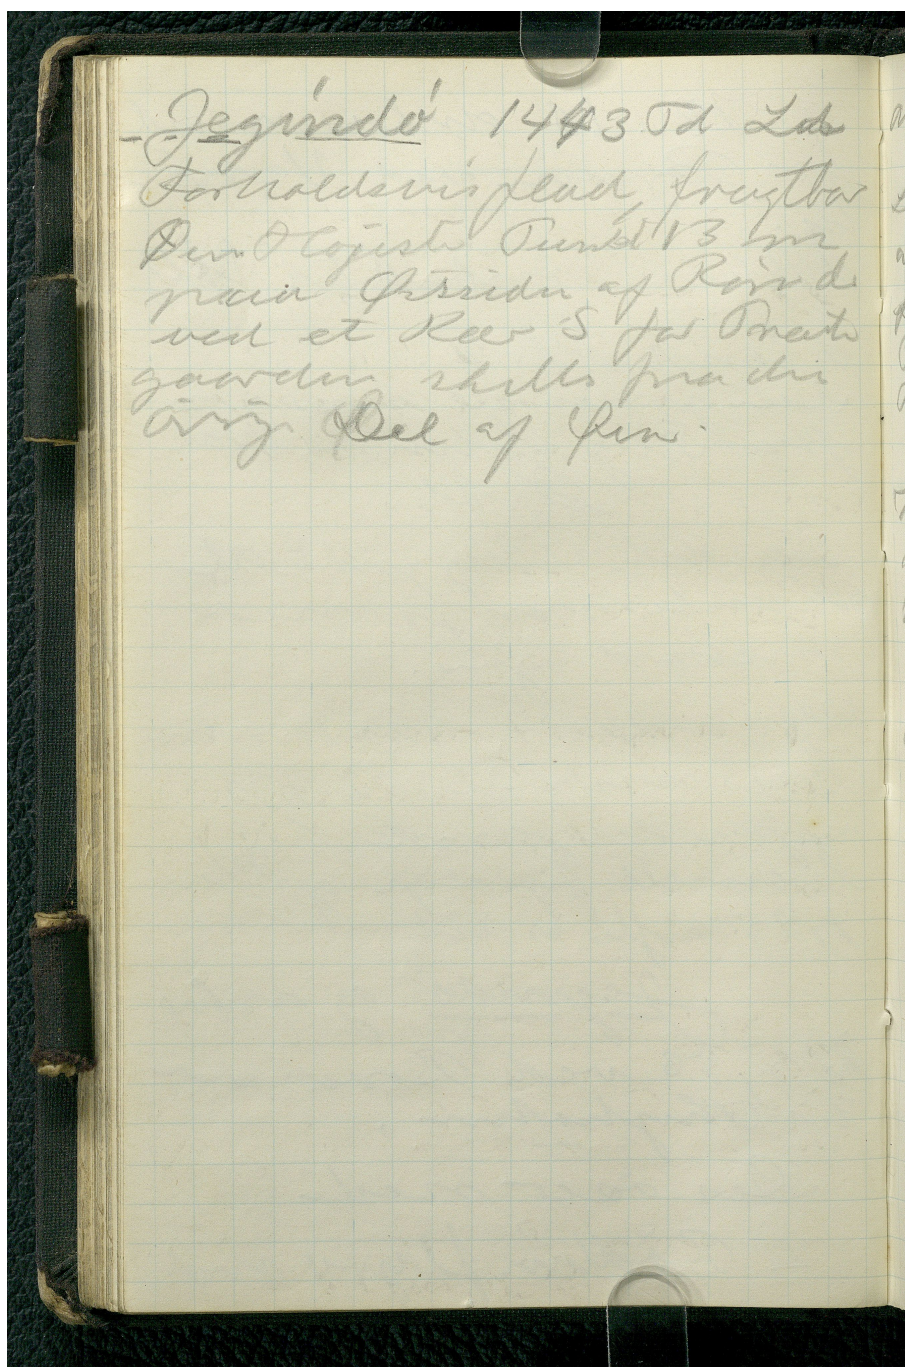 Jegindø 1443 Td Ld
Forholdsvis flad, frugtbar
Den Højeste Punkt 13 m
paa Østsiden af
ved et Kær S for Præste
gaarden skilles fra den
øvrige Del af Øen.